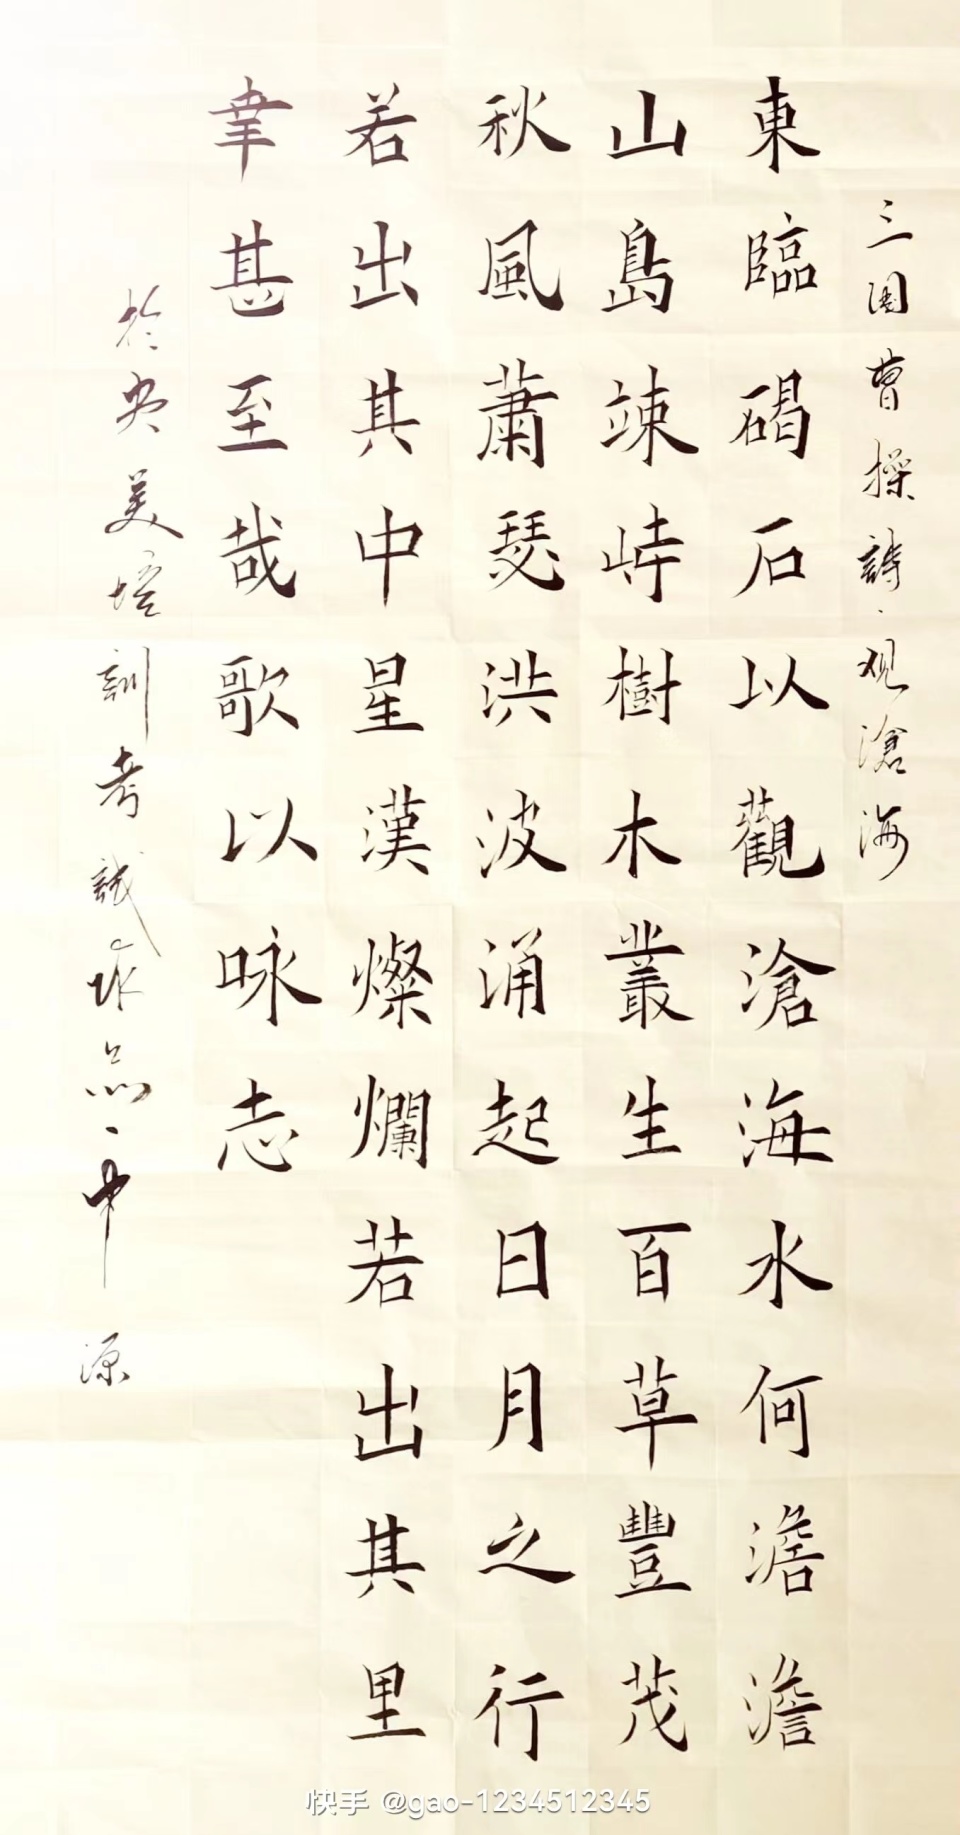 三国曹操詩·观滄海
東臨碣石以觀滄海水何澹澹
山島竦峙樹木叢生百草豐茂
秋風蕭瑟洪波涌起日月之行
若出其中星漢燦爛若出其里
幸甚至哉歌以咏志
於央美培訓考試作品、中源
快手 @gao-1234512345